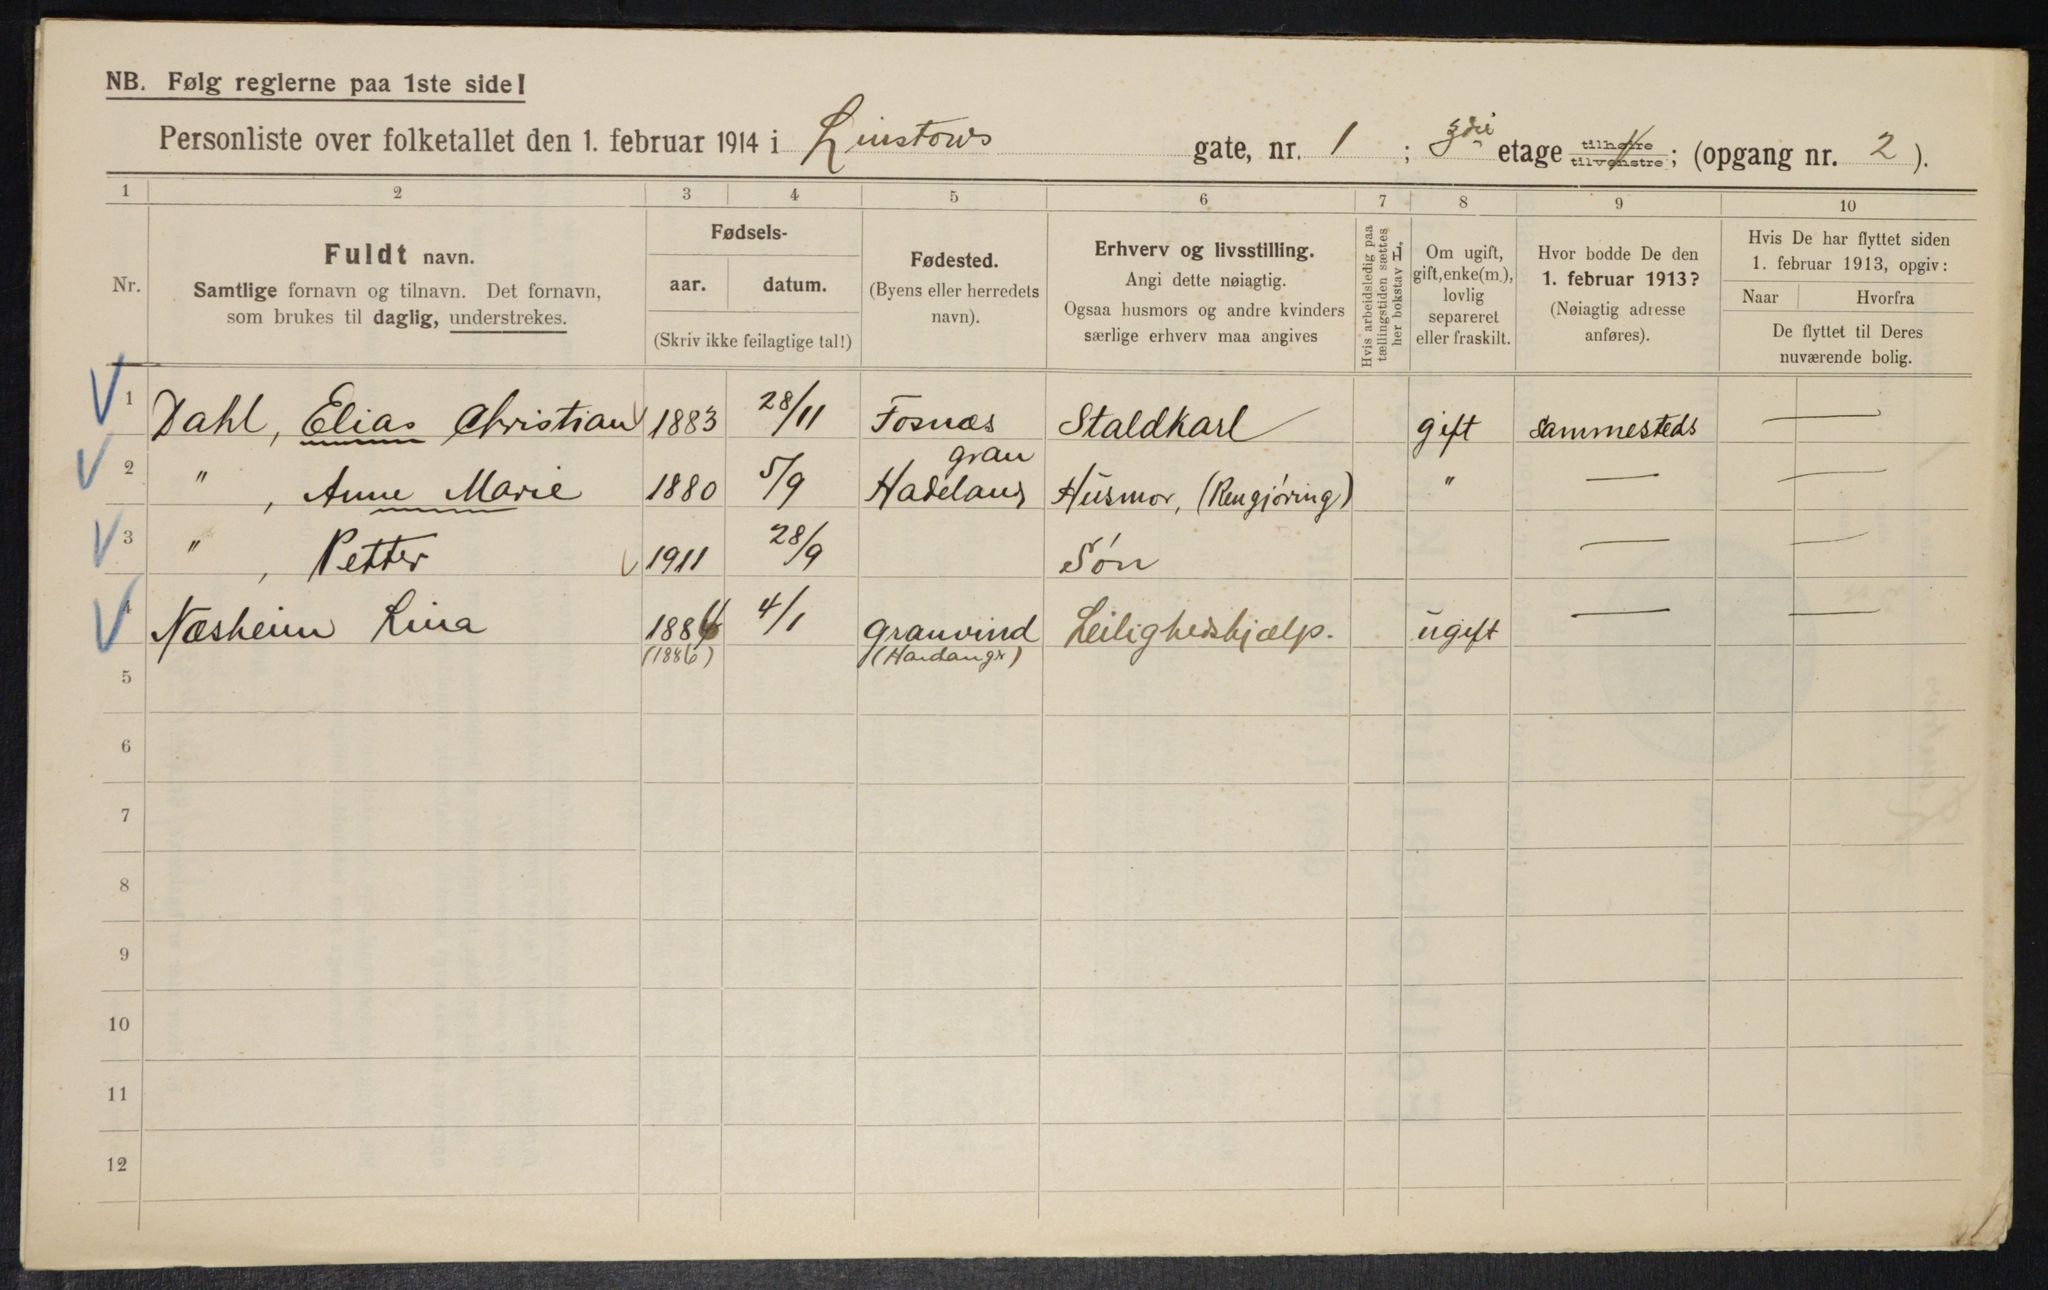 NB. Følg reglerne paa 1ste side!
Personliste over folketallet den 1. februar 1914 i Linstows gate, nr. 1 ; 3die etage tilhøire tilvenstre; (opgang nr. 2 ).
1 2 3 4 5 6 7 8 9 10
Nr.
Fuldt navn.
Samtlige fornavn og tilnavn. Det fornavn,
som brukes til daglig, understrekes.
Fødsels-
aar. datum.
(Skriv ikke feilagtige tal!)
Fødested.
(Byens eller herredets
navn).
Erhverv og livsstilling.
Angi dette nøiagtig.
Ogsaa husmors og andre kvinders
særlige erhverv maa angives
Hvis arbeidsledig paa
tællingstiden sættes
her bokstav L.
Om ugift,
gift, enke(m.),
lovlig
separeret
eller fraskilt.
Hvor bodde De den
1. februar 1913?
(Nøiagtig adresse
anføres).
Hvis De har flyttet siden
1. februar 1913, opgiv:
Naar Hvorfra
De flyttet til Deres
nuværende bolig.
1 Dahl, Elias Christian 1883 28/11 Fosnæs Staldkarl gift sammesteds —
gran
2 " , Anne Marie 1880 5/9 Hadeland Husmor, (Rengjøring) " — —
3 " , Petter 1911 28/9 Søn — —
4 Næsheim Lina 1886 4/1 Granvind Leilighedshjælp. ugift — —
(1886) (Hardanger)
5
6
7
8
9
10
11
12